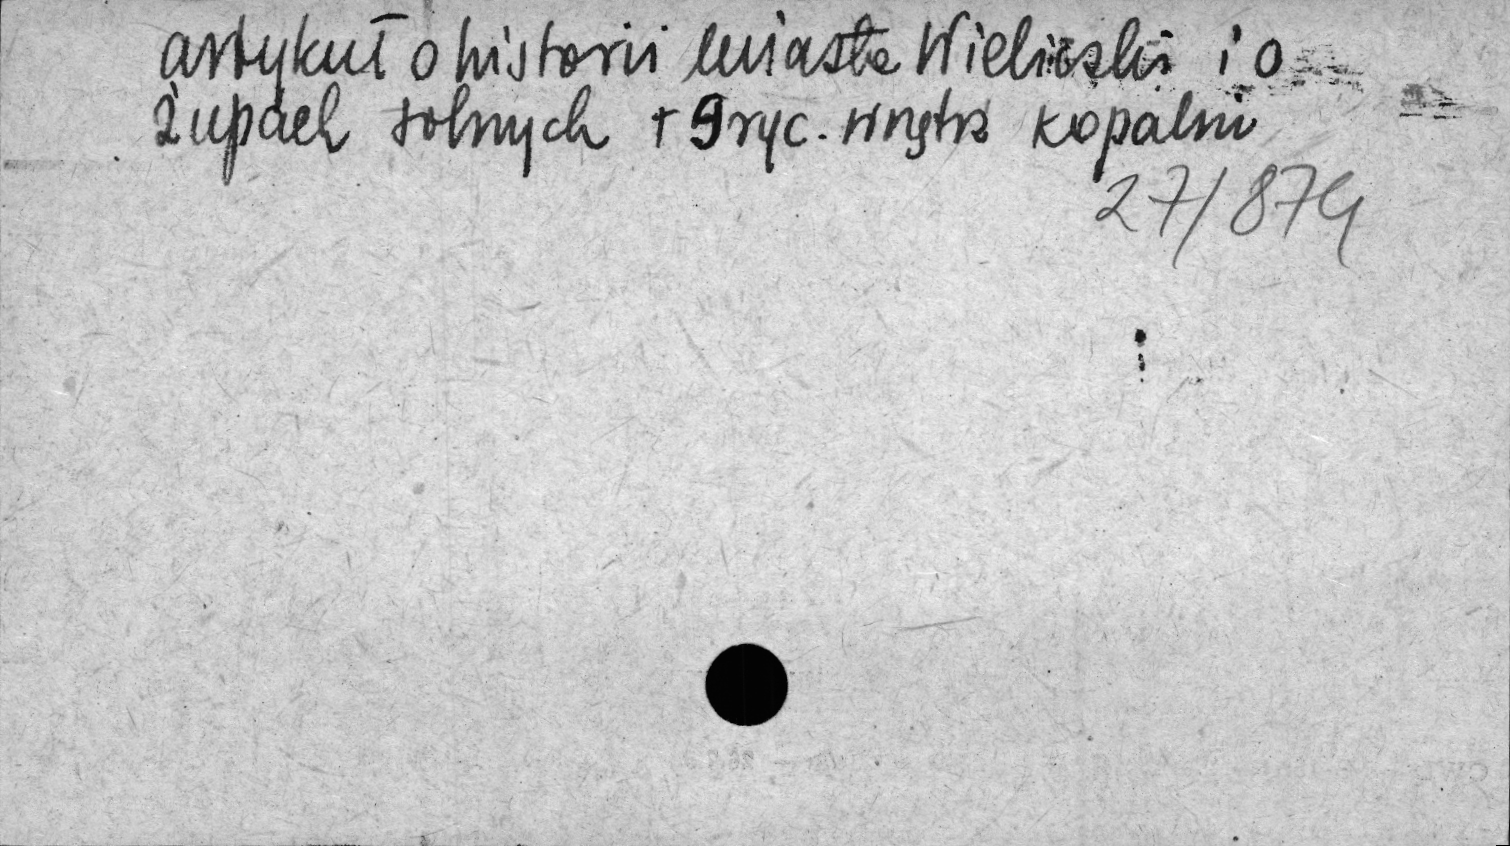 artykuł o historii miasta Wieliczki i o
żupach solnych + 9 ryc. wnętrz kopalni
27/874